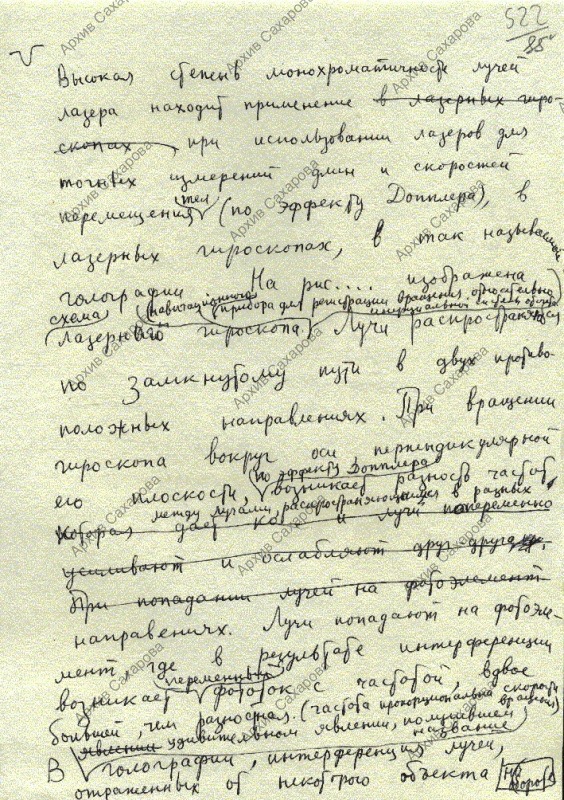 522
85
Высокая степень монохроматичности лучей
лазера находит применение в лазерных гиро-
скопах, при использовании лазеров для
точных измерений длин и скоростей
тел
перемещения (по эффекту Допплера), в
лазерных гироскопах, в так называемой
голографии. На рис.... изображена
схема (навигационного прибора для регистрации вращения относительно
инерциальной системы
лазерного гироскопа). Лучи распространяются
по замкнутому пути в двух противо-
положных направлениях. При вращении
гироскопа вокруг оси, перпендикулярной
по эффекту Допплера
его плоскости, возникает разность частот
между лучами, распространяющимися в разных
которая дает и лучи попеременно
усиливают и ослабляют друг друга.
При попадании лучей на фотоэлемент
направлениях. Лучи попадают на фотоэле-
мент, где в результате интерференции
переменный
возникает фототок с частотой, вдвое
большей, чем разностная. (частота пропорциональна скорости
вращения)
явлении удивительном явлении, получившем
название
В голографии, интерференция лучей,
отраженных от некоторого объекта
на оборо
Архив Сахарова